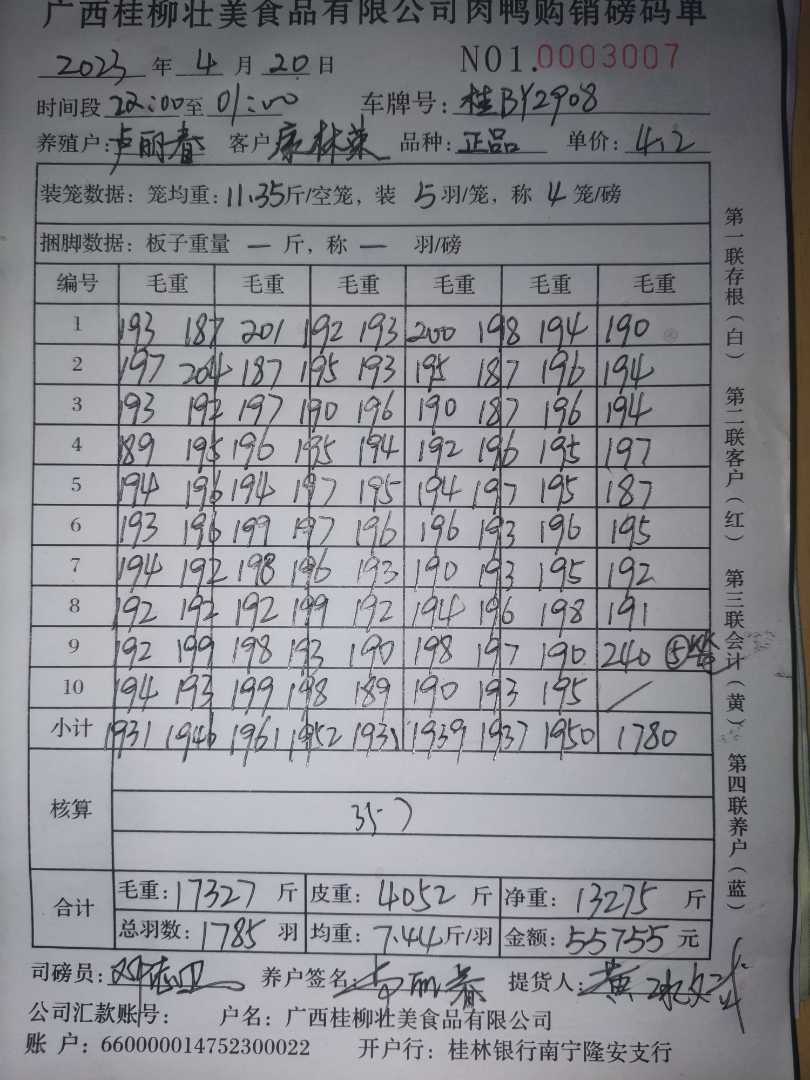 广西桂柳壮美食品有限公司肉鸭购销磅码单
2023 年 4 月 20 日 NO1.0003007
时间段 22:00 至 01:00 车牌号: 桂BY2908
养殖户: 卢丽春 客户 康林荣 品种: 正品 单价: 4.2
装笼数据: 笼均重: 11.35 斤/空笼, 装 5 羽/笼, 称 4 笼/磅
捆脚数据: 板子重量 一 斤, 称 一 羽/磅
编号 毛重 毛重 毛重 毛重 毛重 毛重
1 193 187 201 192 193 200 198 194 190
2 197 204 187 195 193 195 187 196 194
3 193 192 197 190 196 190 187 196 194
4 189 195 196 195 194 192 196 195 197
5 194 196 194 197 195 194 197 195 187
6 193 196 199 197 196 196 193 196 195
7 194 192 198 196 193 190 193 195 192
8 192 192 192 199 192 194 196 198 191
9 192 199 198 193 190 198 197 190 240 ⑤笼
10 194 193 199 198 189 190 193 195 /
小计 1931 1946 1961 1952 1931 1939 1937 1950 1780
核算
357
合计 毛重: 17327 斤 皮重: 4052 斤 净重: 13275 斤
总羽数: 1785 羽 均重: 7.44 斤/羽 金额: 55755 元
司磅员: 养户签名: 卢丽春 提货人: 黄
公司汇款账号: 户名: 广西桂柳壮美食品有限公司
账 户: 660000014752300022 开户行: 桂林银行南宁隆安支行
第一联存根(白) 第二联客户(红) 第三联会计(黄) 第四联养户(蓝)